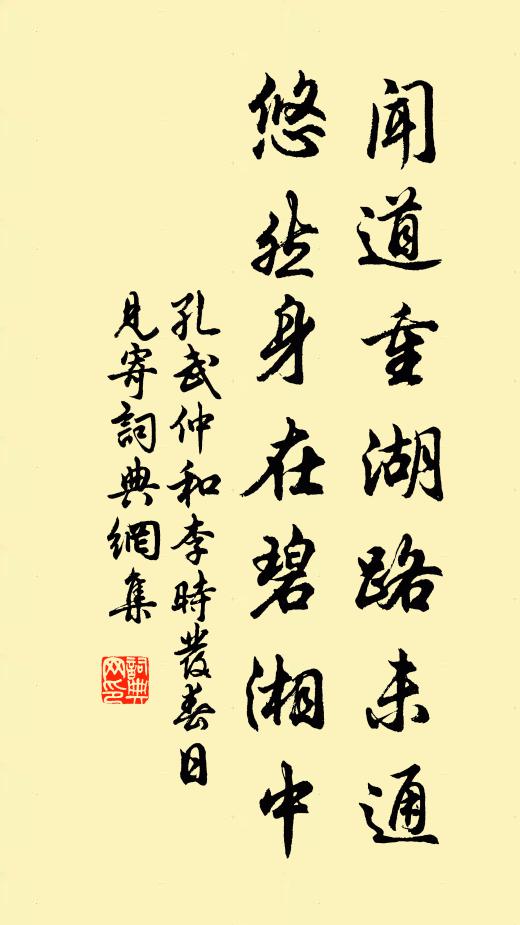 闻道重湖路未通
悠然身在碧湘中
孔武仲和李時發春日
見寄詞典網集
詞典
网印